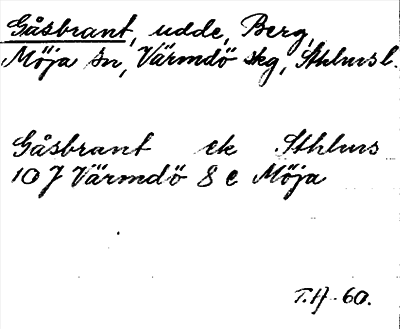 Gåsbrant, udde, Berg,
Möja sn, Värmdö skg, Sthlmsl.
Gåsbrant ek Sthlms
10 J Värmdö 8 e Möja
T.H. 60.